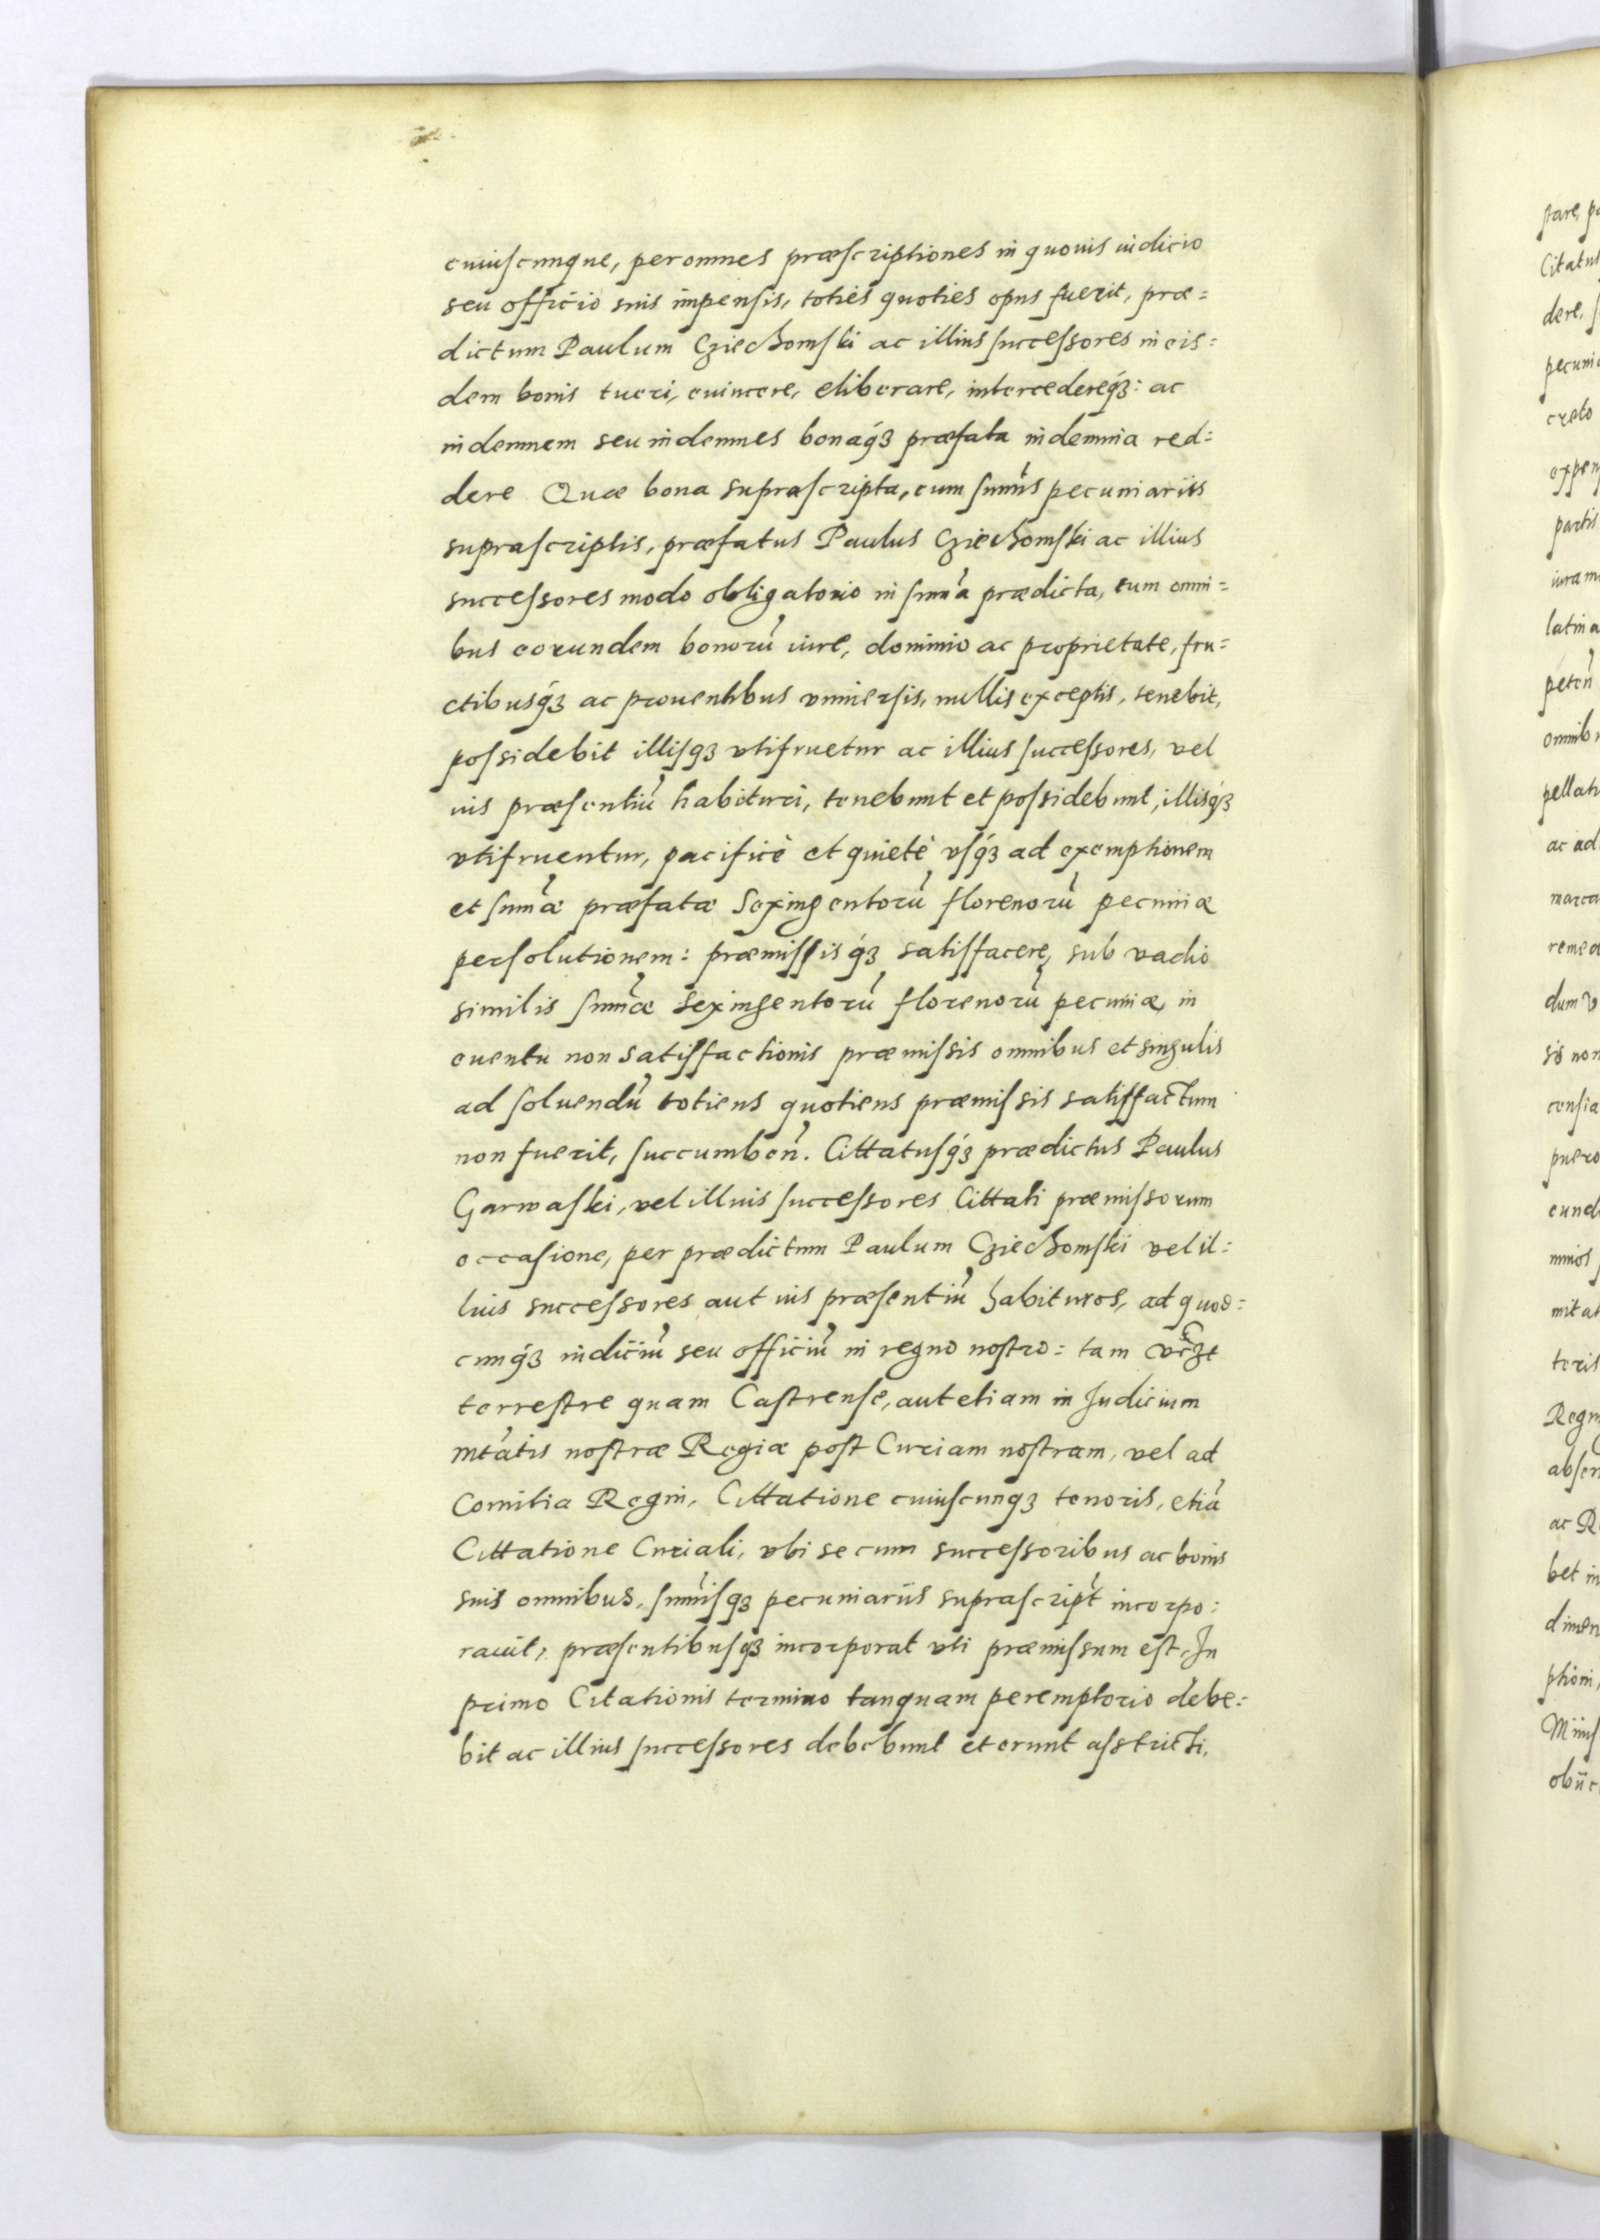 cuiuscunque, per omnes præscriptiones in quouis iudicio
seu officio suis impensis, toties quoties opus fuerit, præ=
dictum Paulum Cziechomski ac illius successores in eis=
dem bonis tueri, euincere, eliberare, intercedereq́ꝫ: ac
indemnem seu indemnes bonaq́ꝫ præfata indemnia red=
dere Quæ bona suprascripta, cum sum̃is pecuniariis
suprascriptis, præfatus Paulus Cziechomski ac illius
successores modo obligatorio in sum̃a prædicta, cum omni=
bus eorundem bonorũ iure, dominio ac proprietate, fru=
ctibusq́ꝫ ac prouentibus vniuersis, nullis exceptis, tenebit,
possidebit illisqꝫ vtifruetur ac illius successores, vel
ius præsentiũ habituri, tenebunt et possidebunt, illisq́ꝫ
vtifruentur, pacificè et quietè vsq́ꝫ ad exemptionem
et sum̃æ præfatæ Sexingentorũ florenorũ pecuniæ
persolutionem: præmissisq́ꝫ satisfacere, sub vadio
similis sum̃æ Sexingentorũ florenorũ pecuniæ, in
euentu non satisfactionis præmissis omnibus et singulis
ad soluendũ totiens quotiens præmissis satisfactum
non fuerit, succumbeñ. Cittatusq́ꝫ prædictus Paulus
Garwaski, vel illius successores Cittati præmissorum
occasione, per prædictum Paulum Cziechomski vel il=
lius successores aut ius præsentiũ habituros, ad quod=
cunq́ꝫ iudiciũ seu officiũ in regno nostro: tam
terrestre quam Castrense, aut etiam in Judicium
mtãtis nostræ Regiæ post Curiam nostram, vel ad
Comitia Regni, Cittatione cuiuscunqꝫ tenoris, etiã
Cittatione Curiali, vbi se cum successoribus ac bonis
suis omnibus, sum̃isqꝫ pecuniariis suprascript̃ incorpo:
rauit, præsentibusqꝫ incorporat vti præmissum est, In
primo Citationis termino tanquam peremptorio debe=
bit ac illius successores debebunt et erunt astricti,